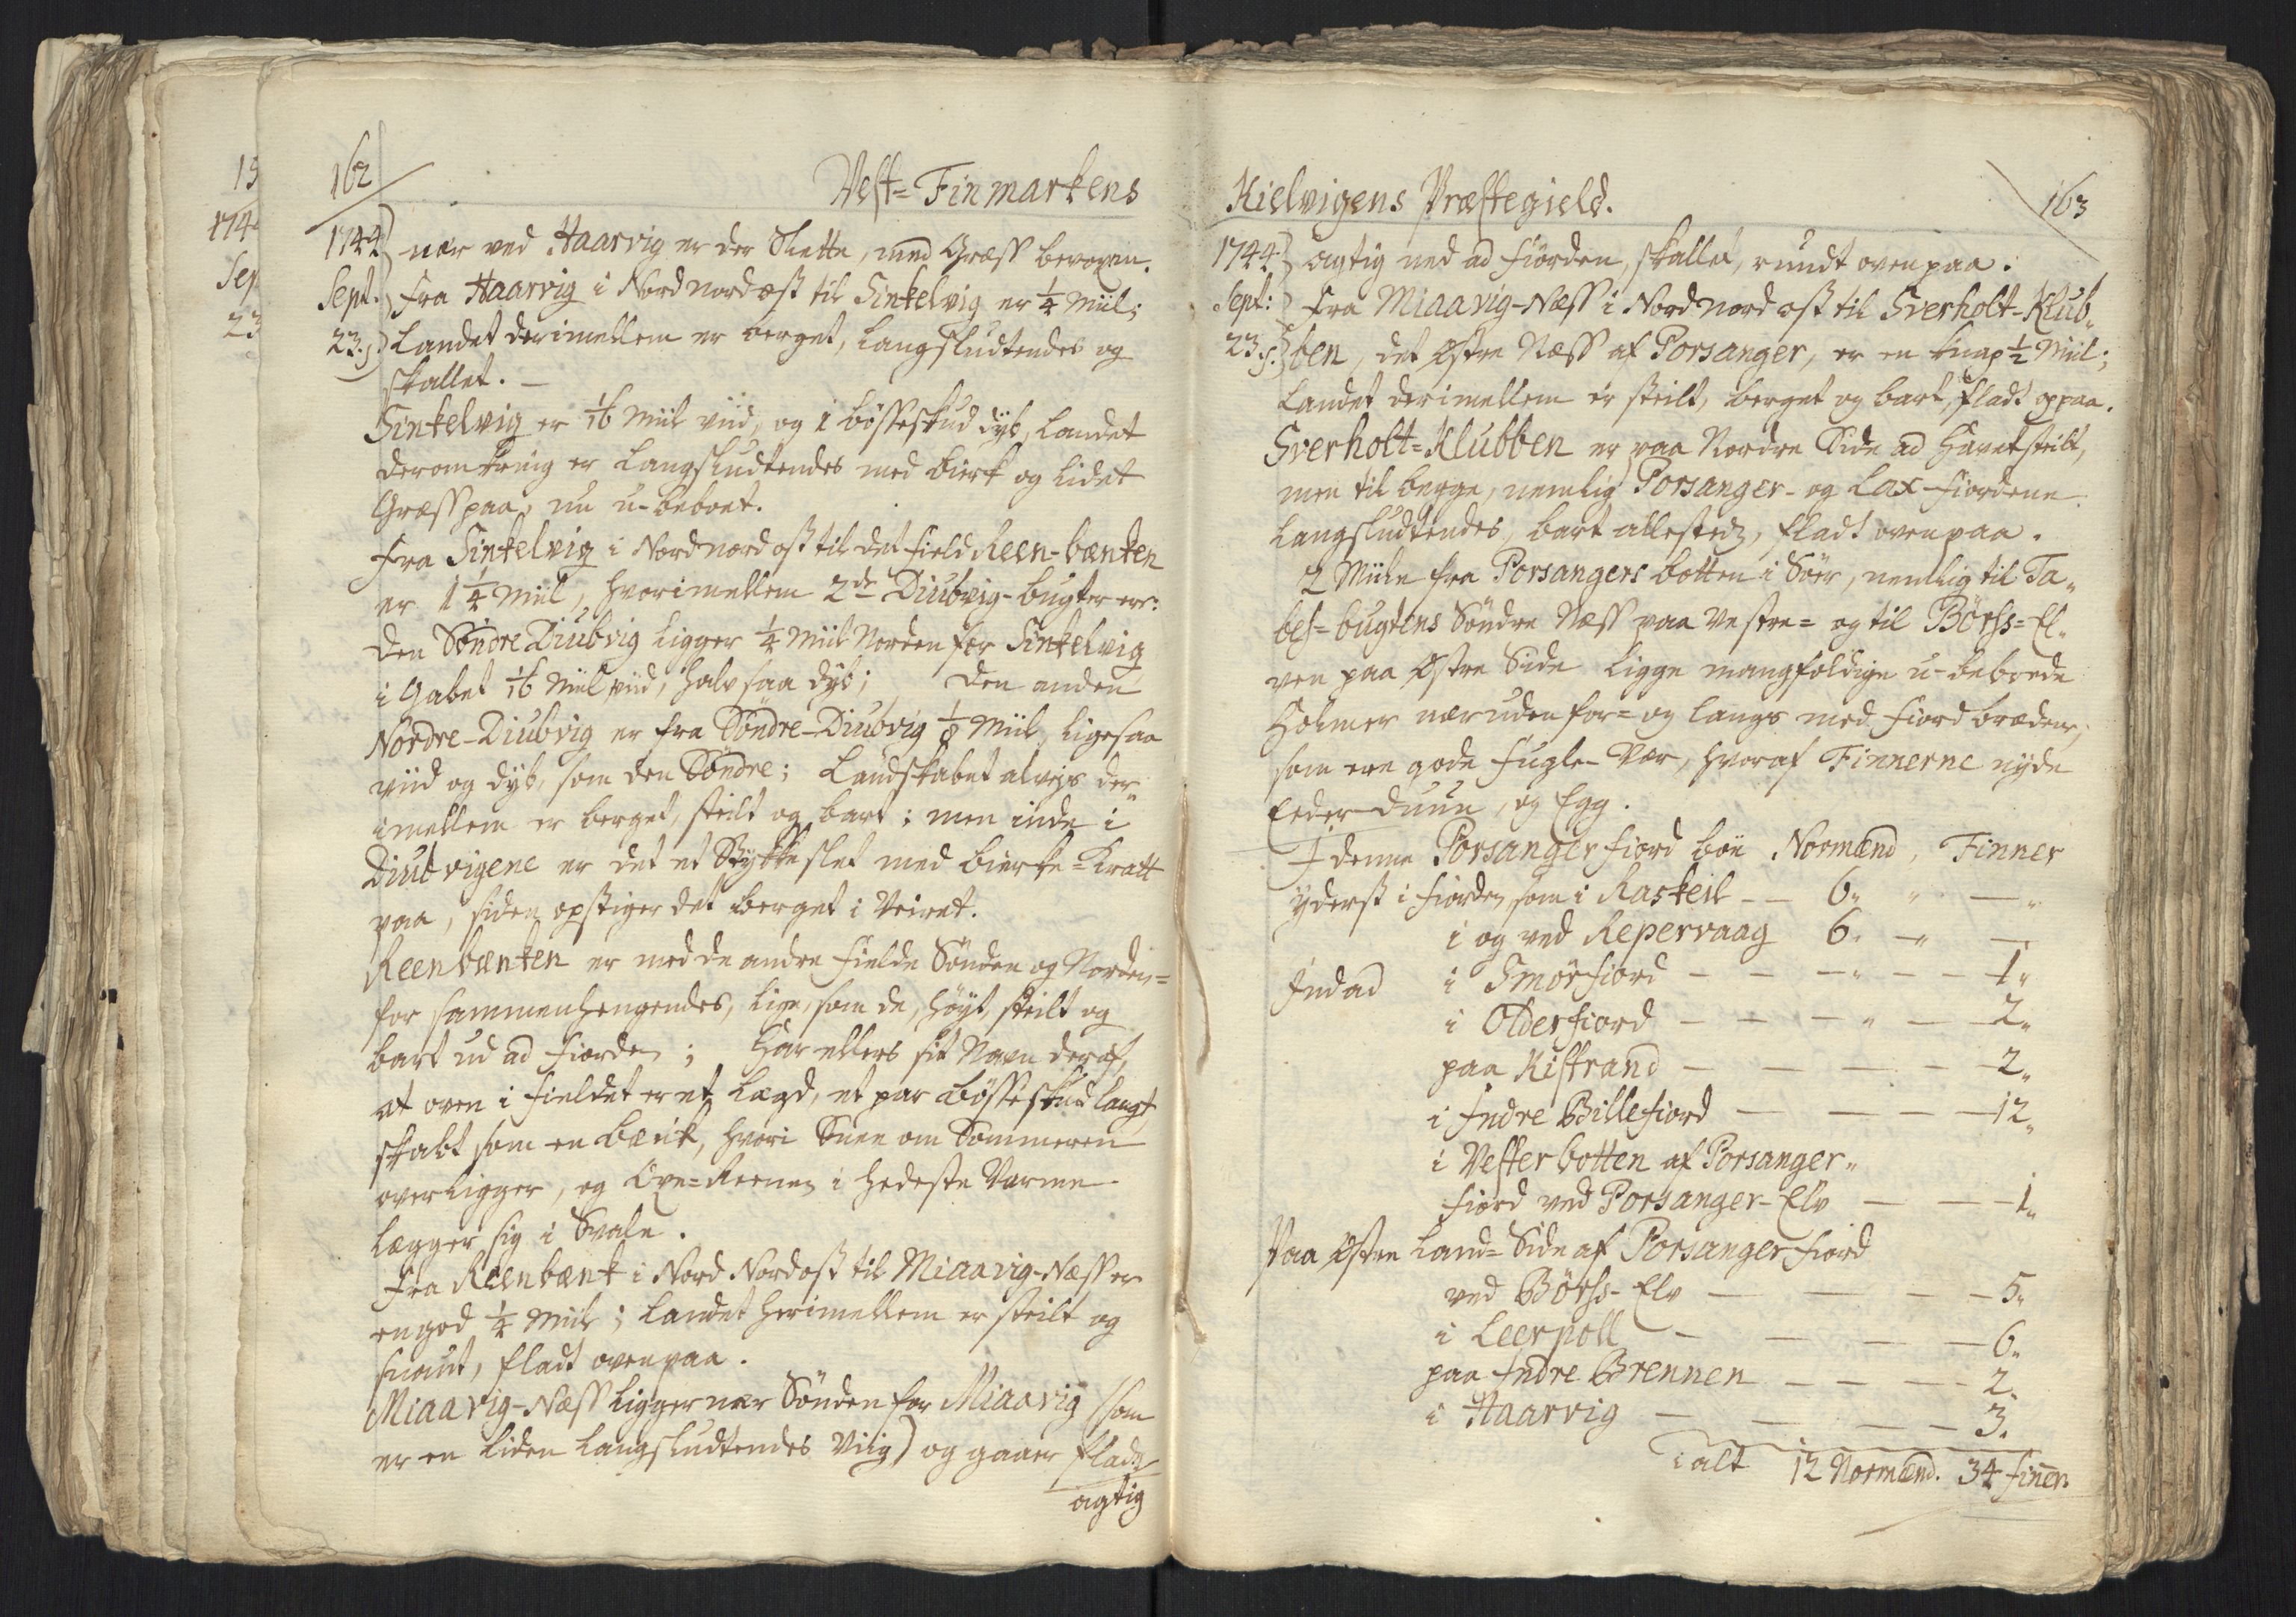 13
174
Sep
23
162
Vest=Finmarkens
1744 nær ved Haarvig er der Slette, med Græss bevoxen.
Sept. Fra Haarvig i Nordnordost til Sinkelvig er 1/4 Miil;
23. s. Landet derimellem er berget, Langsludtendes og
skallet. —
Sinkelvig er 1/16 Miil viid, og 1 bösseskud dyb, Landet
deromkring er Langsludtendes med Birk og lidet
Græss paa, nu u-beboet.
Fra Sinkelvig i Nordnordost til det Field Reen-bænken
er 1 1/4 Miil, hvorimellem 2de Diubvig-bugter ere:
Den Søndre Diubvig Ligger 1/4 Miil Norden for Sinkelvig
i Gabet 1/16 Miil viid, halv saa dyb; Den anden
Nordre-Diubvig er fra Søndre-Diubvig 1/8 Miil, ligesaa
viid og dyb, som den Søndre; Landskabet alvejs der
imellem er berget, steilt og bart; men inde i
Diubvigene er det et Stykke slet med Birke=Kratt
paa, siden opstiger det berget i Veiret.
Reenbænken er med de andre Fielde Sønden og Norden=
for sammenhengendes, Lige, som de, høyt, steilt og
bart ud ad Fiorden; Har ellers sit Navn deraf,
at oven i Fieldet er et Lægd, et par Bösseskud langt,
skabt som en Bænk, hvori Snee om Sommeren
overligger, og Reenen i hedeste Varme
Lægger sig i Svale.
Fra Reenbænk i Nord Nordost til Miaavig-Næss er
en god 1/4 Miil; Landet herimellem er steilt og
snaut, fladt ovenpaa.
Miaavig-Næss Ligger nær Sønden for Miaavig (som
er en Liden Langsludtendes Viig) og gaaer flad
agtig
Kielvigens Præstegield.
163
1744 agtig ned ad Fiorden, skallet, rundt ovenpaa.
Sept: Fra Miaavig-Næss i Nordnordost til Sverholt-Klub„
23. s. ben, det Østre Næss af Porsanger, er en knap 1/2 Miil;
Landet derimellem er steilt, berget og bart, fladt oppaa.
Sverholt=Klubben er paa Nordre Side ad Havet steilt,
men til begge, nemlig Porsanger- og Lax-Fiordene
Langsludtendes, bart allesteds, fladt ovenpaa.
2 Miile fra Porsangers botten i Söer, nemlig til Ta„
bes=bugtens Söndre Næss paa Vestre= og til Börss=El„
ven paa Østre Side Ligge mangfoldige u-beboede
Holmer nær uden for= og langs med Fiord brædene,
som ere gode Fugle-Vær, hvoraf Finnerne nyde
Eeder-duun, og Egg.
I denne Porsanger Fiord boe Normænd, Finner
yderst i Fiorden, som i Raskeil — — 6„ „ — „
i og ved Repervaag 6. — „ —
Indad i Smörfiord — — — „ — — 1„
i Olderfiord — — — „ — 2„
paa Kistrand — — — — — 2„
i Indre Billefiord — — — — 12„
i Vesterbotten af Porsanger„
fiord ved Porsanger-Elv — — — 1„
Paa Østre Land=Side af Porsanger Fiord
ved Börss-Elv — — — — 5„
i Leerpoll — — — — 6„
paa Indre Brennen — — — — 2.
i Haarvig — — — — 3.
i alt 12 Normænd. 34 Finer.